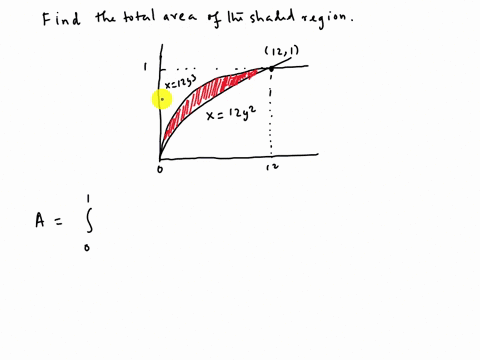 Find the total area of the shaded region.
(12,1)
1
x=12y³
x = 12y²
0
12
A = ∫₀¹